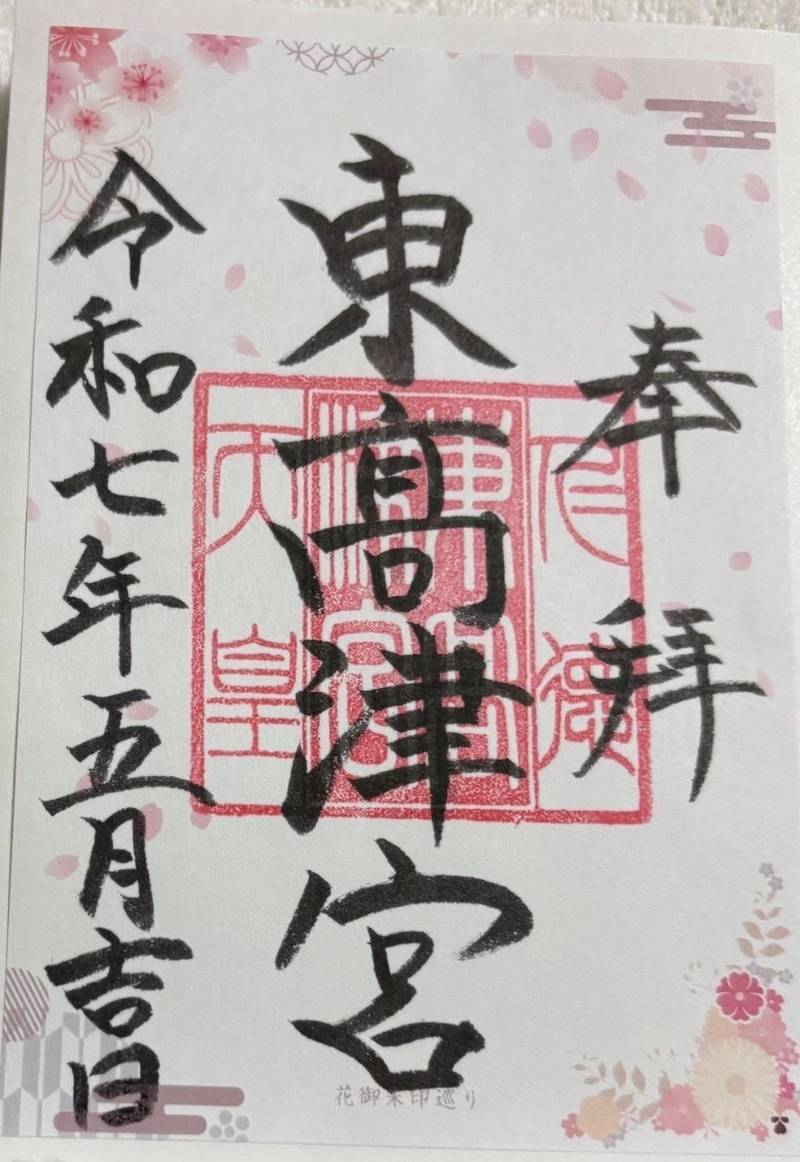 奉拝
東高津宮
令和七年五月吉日
仁徳
東高津宮
天皇
花御朱印巡り